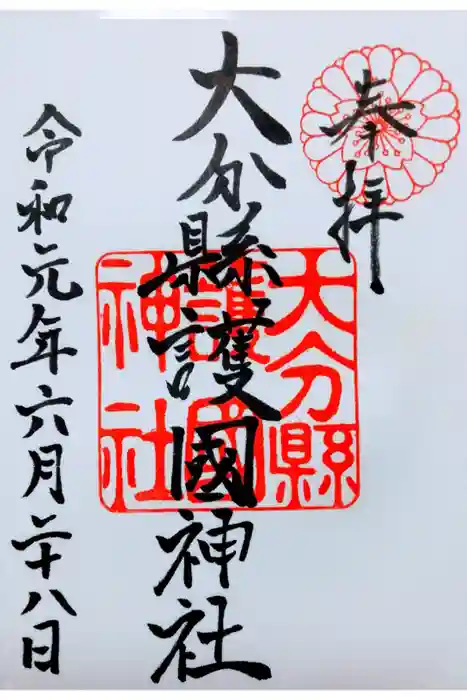 奉拝
大分縣護國神社
大分縣
護國
神社
令和元年六月二十八日